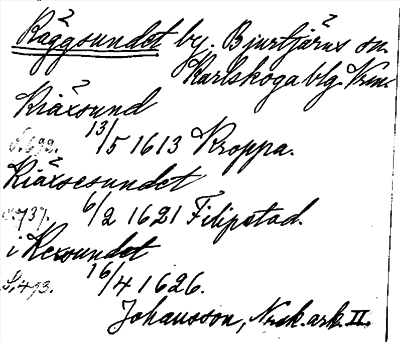 Räggsundet by. Bjurtjärns sn.
Karlskoga blg. Vrm.
Kiäxsund
S.692. 13/5 1613 Kroppa.
Kiäxsesundet
s.737. 6/2 1621 Filipstad.
i Kexsundet
S.493. 16/4 1626.
Johansson, Nrsk. ark. II.